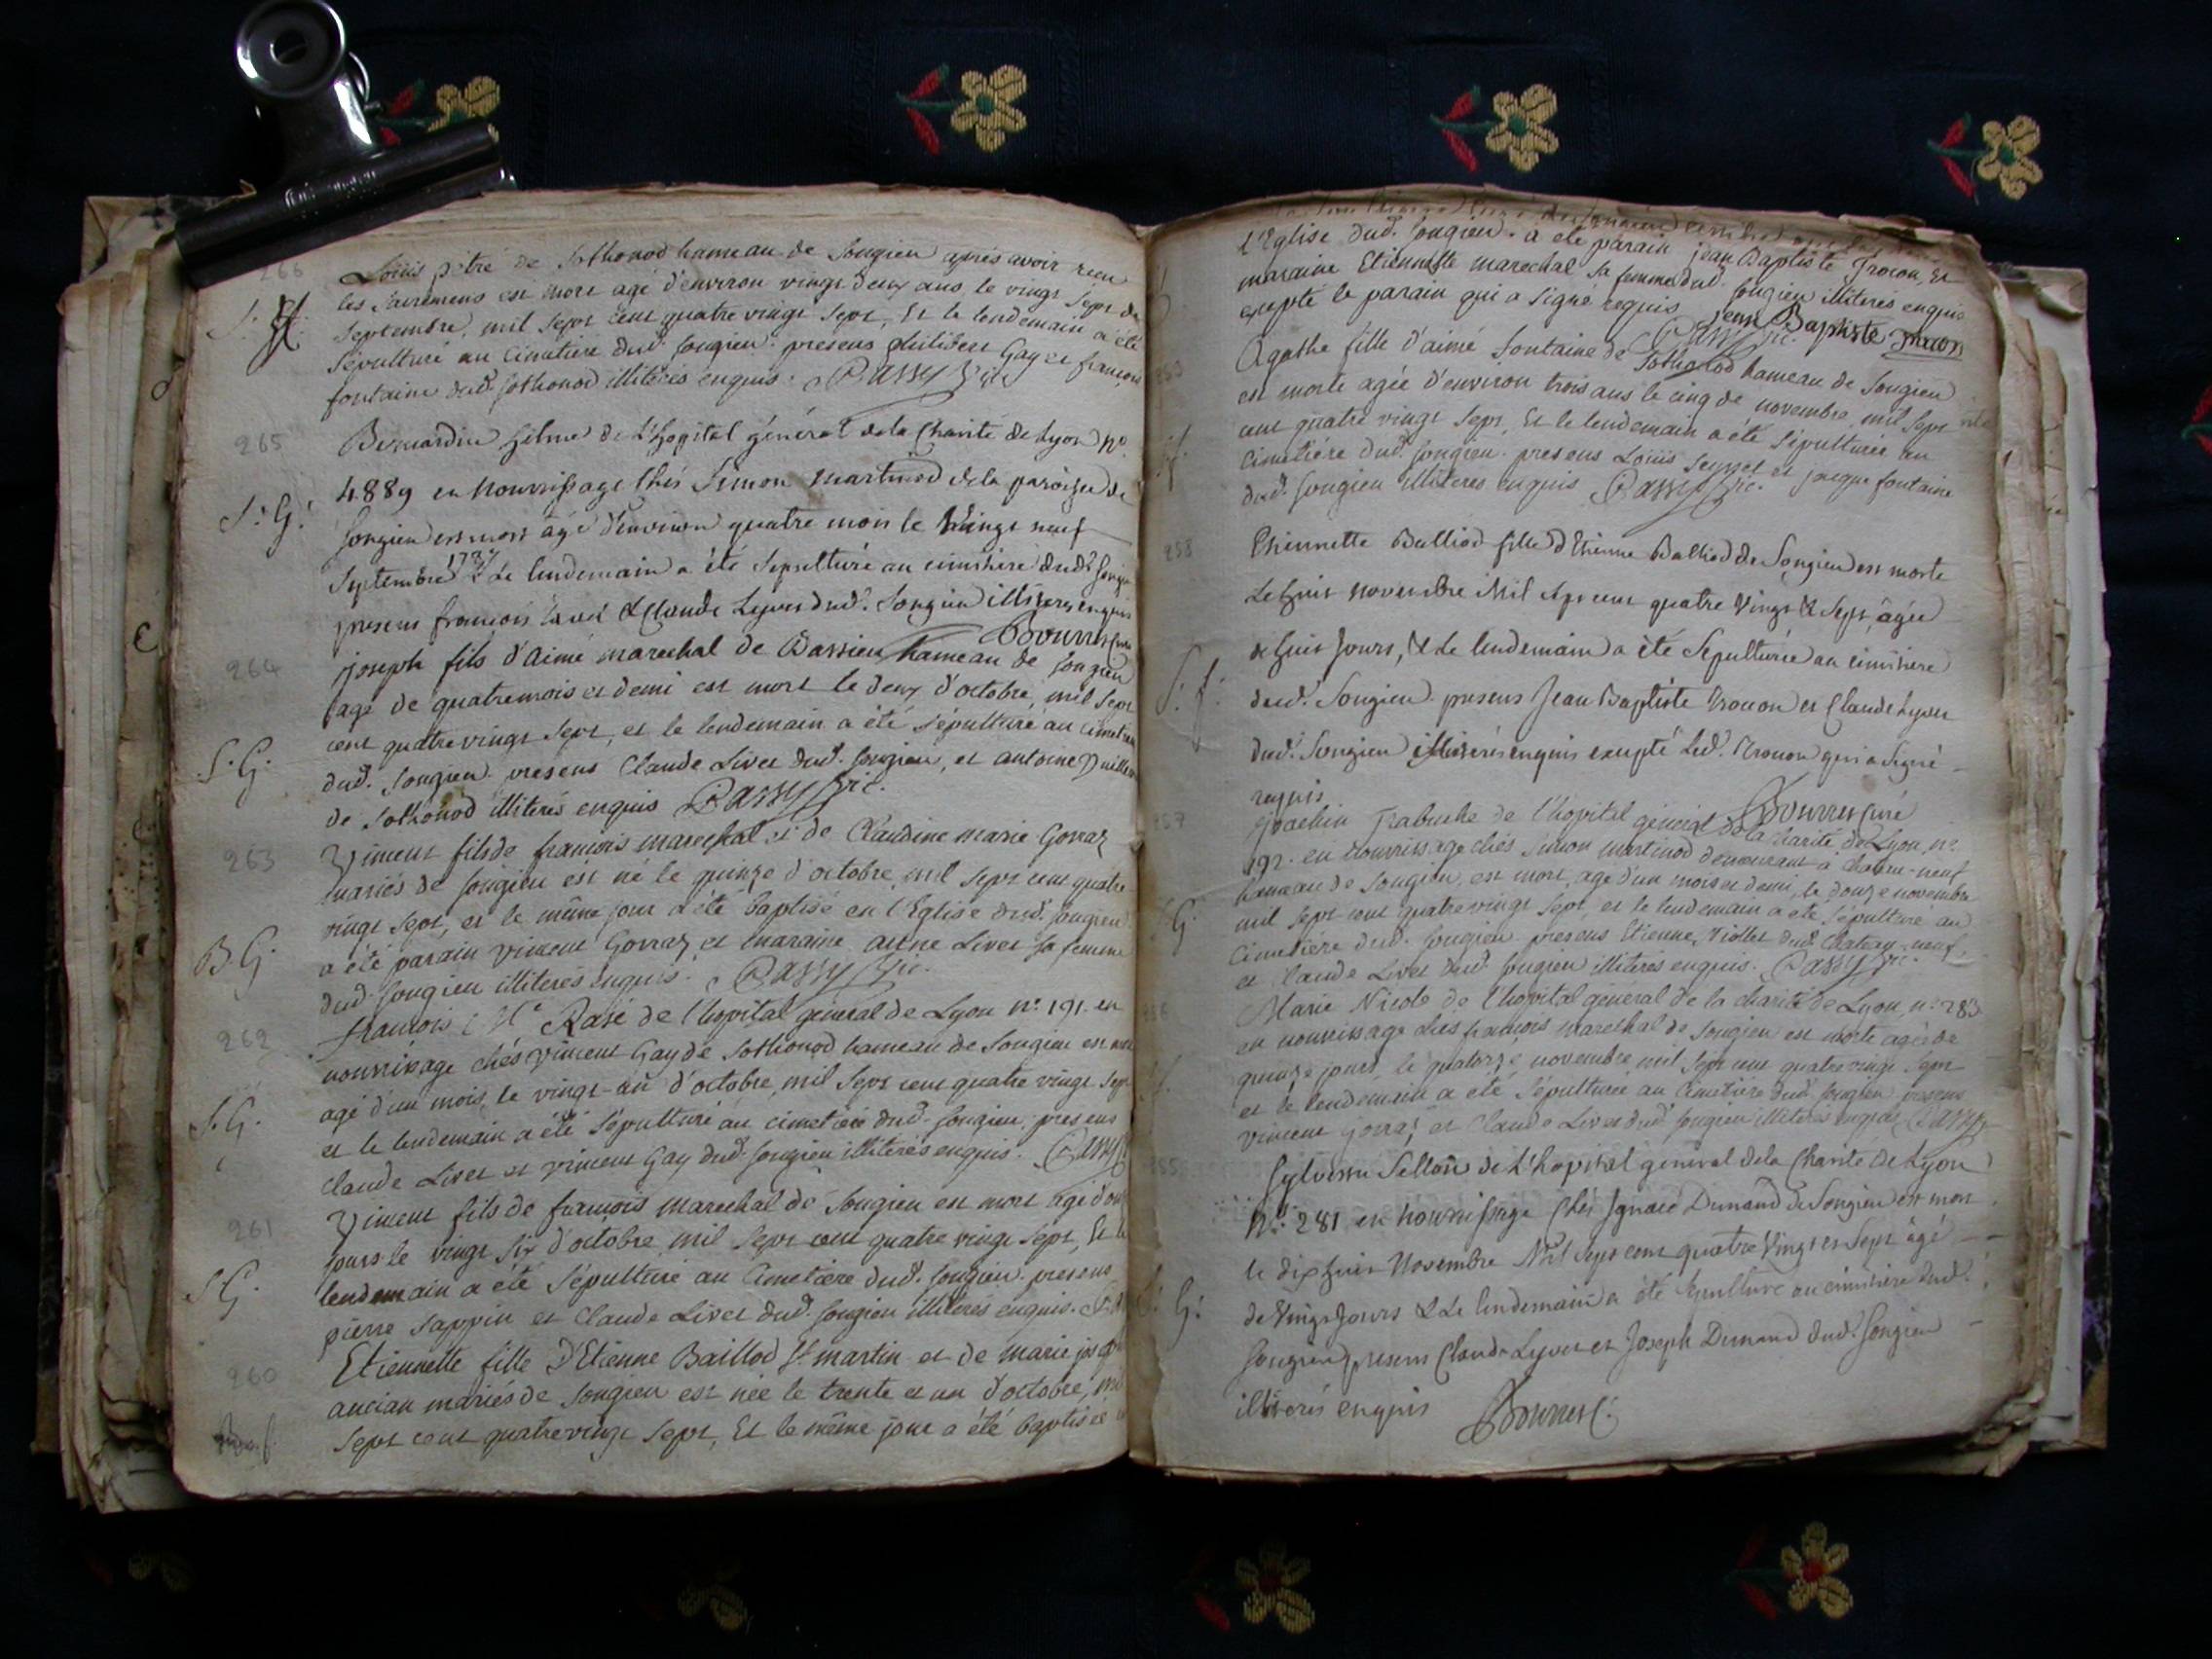 266
Loüis pitre de Sothonod hameau de Songieu aprés avoir recu
les Sacremens est mort agé d'environ vingt deux ans le vingt Sept de
Septembre, mil Sept cent quatre vingt Sept, Et le lendemain a été
Sépulturé au Cimetiere dud. Songieu. presens philibert Gay et francois
fontaine dud. Sothonod illiterés enquis. Passy Vic
265
Bernardin de L'Hopital général dela Charité de Lyon No.
4889 en Nourrissage Chés Simon Martinod dela paroisse de
S. G.
Songieu est mort âgé d'environ quatre mois le Vingt neuf
Septembre 1787 & Le lendemain a été Sepulturé au cimitière dudt. Songieu
presens francois & Claude Lyvet dud. Songieu illiterés enquis
Bourret Curé
264
joseph fils d'Aimé marechal de Bassieu hameau de Songieu
agé de quatre mois et demi est mort le deux d'octobre, mil Sept
cent quatre vingt Sept, et le lendemain a été Sépulturé au Cimetiere
S. G.
dud. Songieu. presens Claude Livet dud. Songieu, et antoine
de Sothonod illiterés enquis Passy Vic.
263
Vincent fils de francois marechal et de Claudine marie Gorraz
mariés de Songieu est né le quinze d'octobre, mil Sept cent quatre
vingt Sept, et le même jour a été baptisé en l'Eglise dud. Songieu
B. G.
a été parain vincent Gorraz et maraine anne Livet Sa femme
dud. Songieu illiterés enquis. Passy Vic.
262
francois Rasé de l'hopital général de Lyon no. 191. en
nourrisage chés vincent Gay de Sothonod hameau de Songieu est mort
agé d'un mois, le vingt-un d'octobre, mil Sept cent quatre vingt Sept
S. G.
et le lendemain a été Sépulturé au cimetiere dud. Songieu. presens
Claude Livet et vincent Gay dud. Songieu illiterés enquis. Passy
261
Vincent fils de francois marechal de Songieu est mort agé d'onze
jours le vingt Six d'octobre, mil Sept cent quatre vingt Sept, Et le
S. G.
lendemain a été Sépulturé au Cimetiere dud. Songieu. presens
pierre Sappin et Claude Livet dud. Songieu illiterés enquis.
260
Etiennette fille D'Etienne Baillod St martin et de marie
ancian mariés de Songieu est née le trente et un d'octobre, mil
Sept cent quatre vingt Sept, Et le même jour a été baptisée
l'Eglise dud. Songieu. a été parain jean Baptiste Trocon, Et
maraine Etiennette marechal Sa femme dud. Songieu illiterés enquis
exepté le parain qui a Signé requis jean Baptiste trocon
Passy Vic.
Agathe fille d'aimé fontaine de Sothonod hameau de Songieu
est morte agée d'environ trois ans le cinq de novembre, mil Sept
cent quatre vingt Sept, Et le lendemain a été Sépulturée au
Cimetiére dud. Songieu. presens Loüis Seyssel et jacque fontaine
dud. Songieu illiterés enquis Passy Vic.
258
Etiennette Balliod fille d'Etienne Balliod de Songieu est morte
Le huit novembre Mil Sept cent quatre Vingt & Sept, âgée
de huit Jours, & Le lendemain a été Sépulturée au cimitiere
dud. Songieu. presens Jean Baptiste Trocon et Claude Lyvet
dud. Songieu illiterés enquis exepté led. Trocon qui a Signé
requis
Bourret Curé
257
joachin Trabuche de l'hopital général de la charité de Lyon, no.
192. en nourrissage chés Simon martinod demeurant à Chateau-neuf
hameau de Songieu, est mort, agé d'un mois et demi, le douze novembre
mil Sept cent quatre vingt Sept, et le lendemain a été Sépulturé au
G.
Cimetiére dud. Songieu. presens Etienne Viollet dud. Chateau-neuf,
et Claude Livet dud. Songieu illiterés enquis. Passy Vic.
256
Marie Nicole de l'hopital général de la charité de Lyon, no. 283
en nourrissage chés francois marechal de Songieu est morte agée de
quinze jours, le quatorze novembre, mil Sept cent quatre vingt Sept
et le lendemain a été Sépulturée au Cimetiére dud. Songieu presens
vincent Gorraz et Claude Livet dud. Songieu illiterés enquis Passy
255
Sylvestre de L'hopital général dela Charité de Lyon
No. 281 en Nourrissage Chés Ignace Dumand de Songieu est mort
le dix huit Novembre Mil Sept cent quatre Vingt et Sept âgé
G.
de Vingt Jours & Le lendemain a été Sepulturé au cimitiere dud.
Songieu presens Claude Lyvet et Joseph Dumand dud. Songieu
illiterés enquis Bourret C.